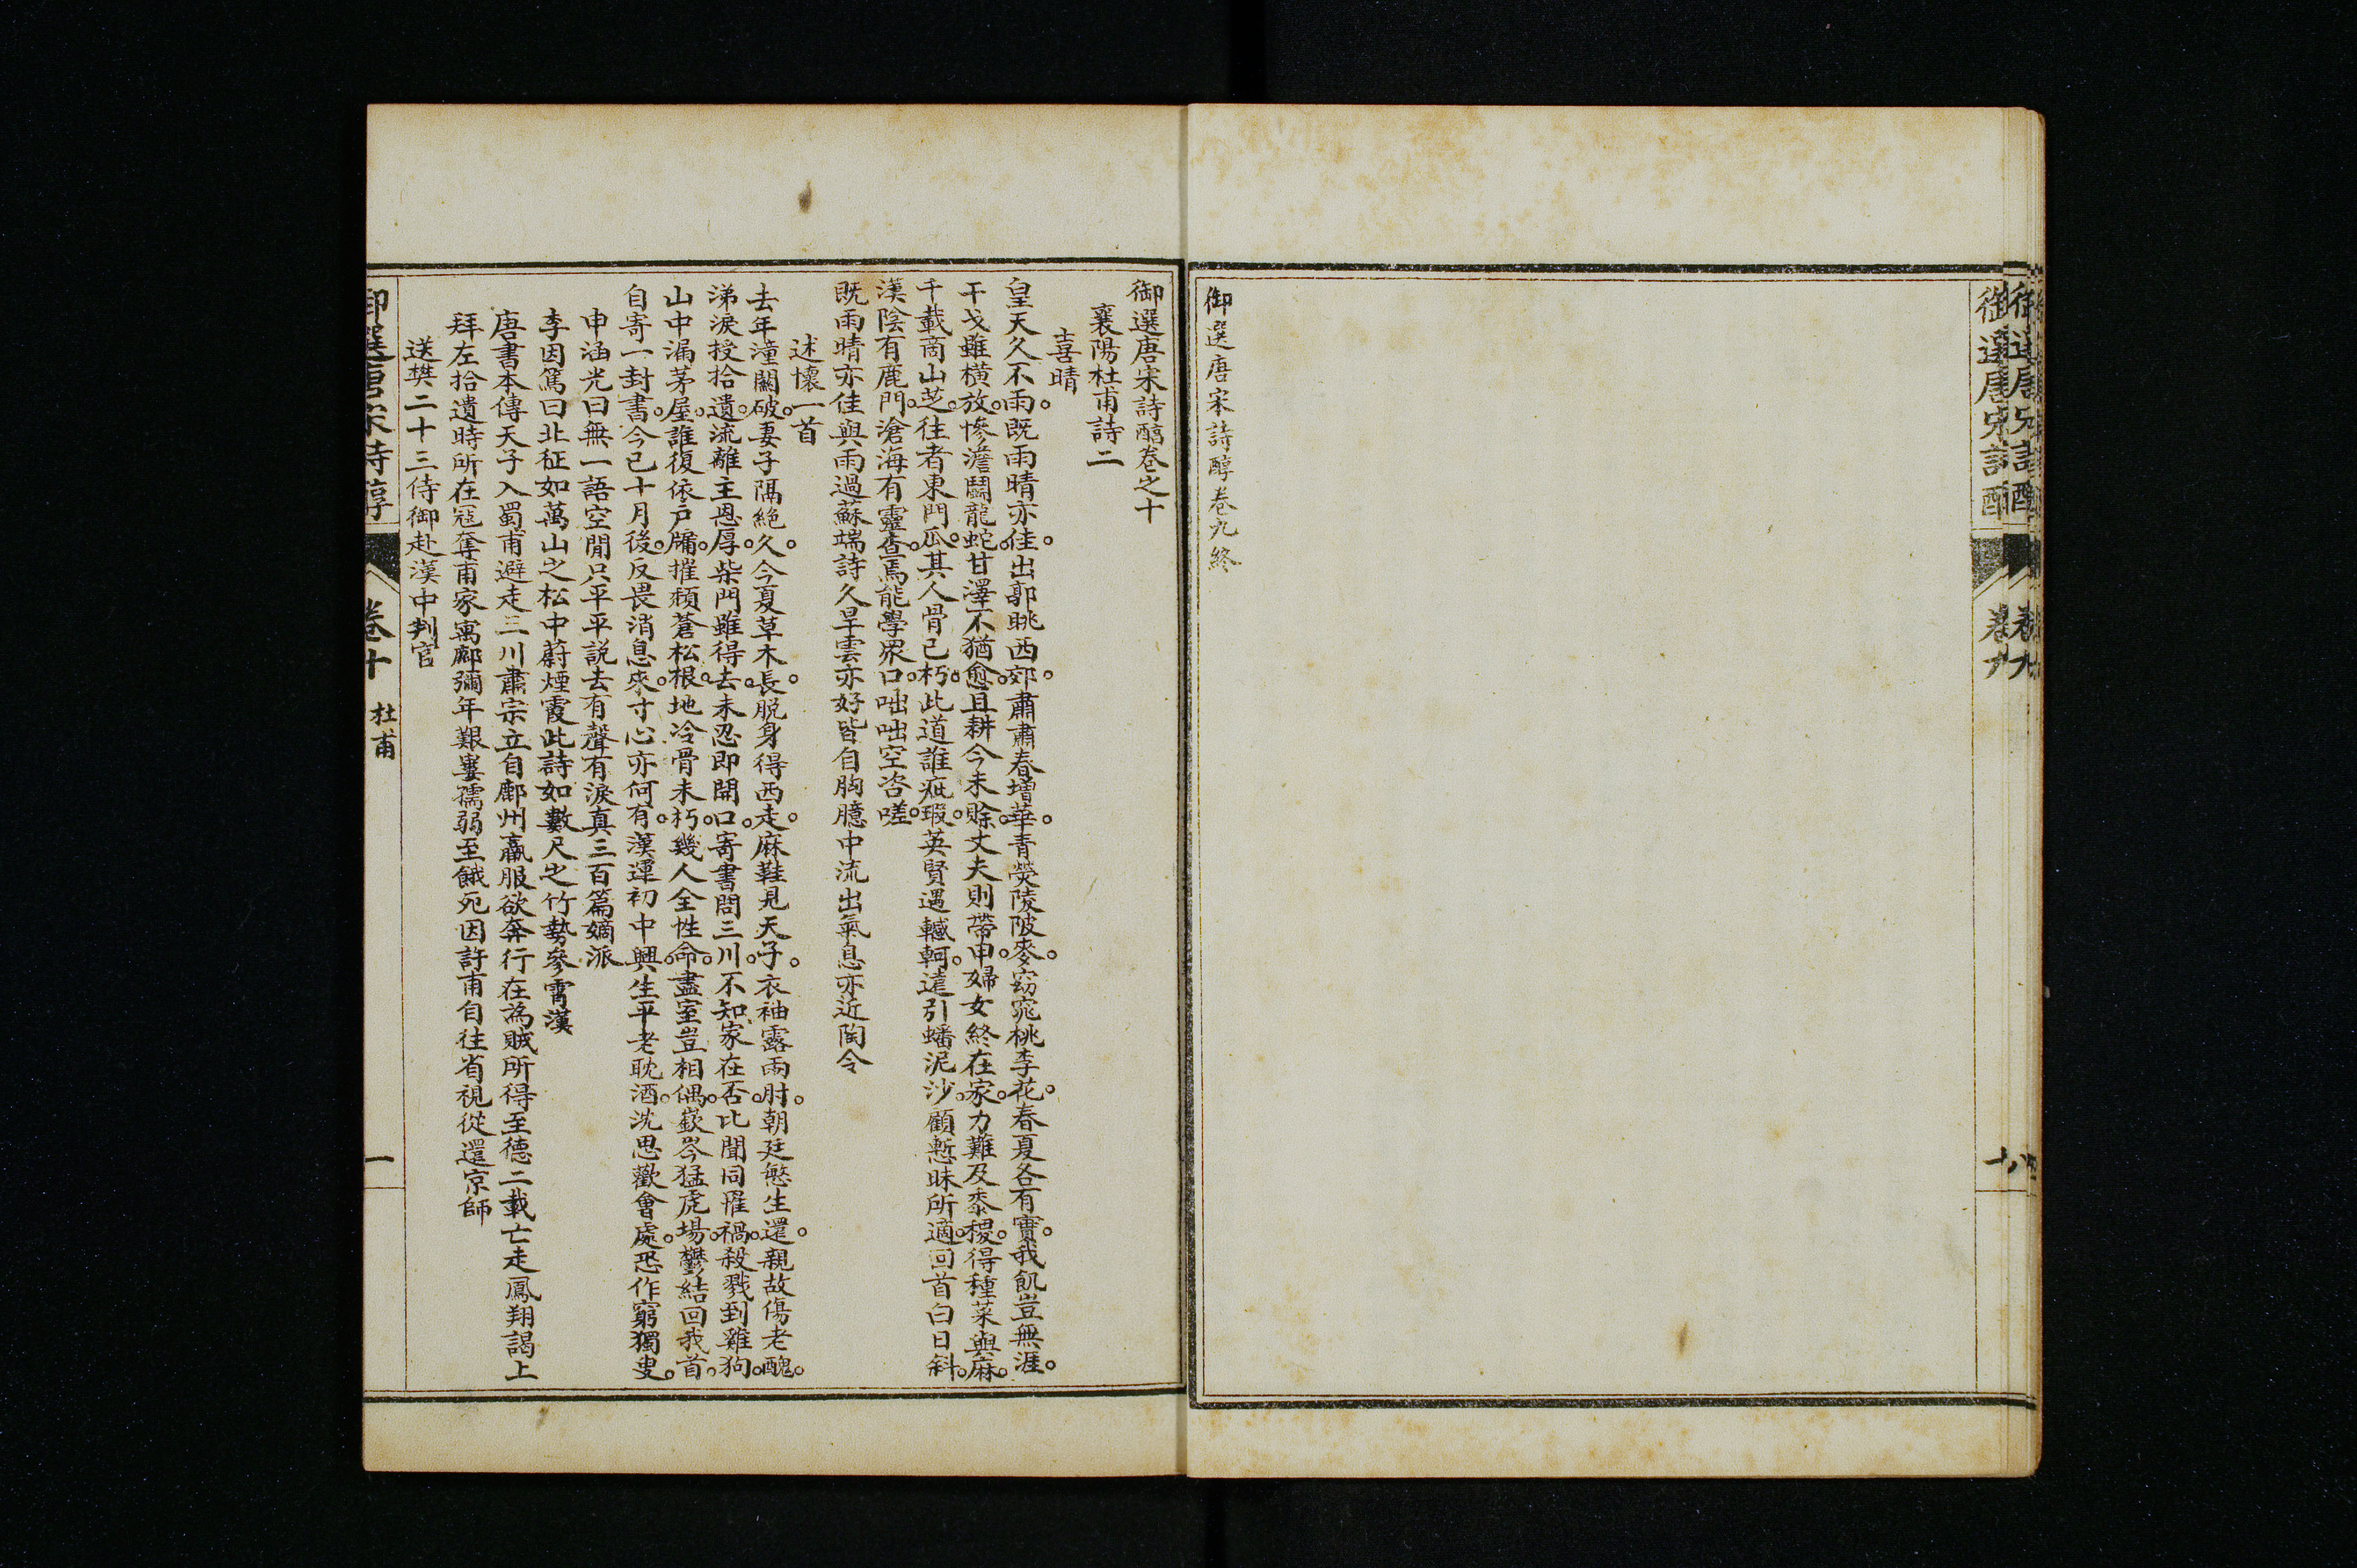 御選唐宋詩醇
卷九
十八
御選唐宋詩醇卷九終
御選唐宋詩醇卷之十
襄陽杜甫詩二
喜晴
皇天久不雨。既雨晴亦佳。出郭眺西郊。肅肅春增華。青熒陵陂麥。窈窕桃李花。春夏各有實。我飢豈無涯。
干戈雖橫放。慘澹鬭龍蛇。甘澤不猶愈。且耕今未賖。丈夫則帶甲。婦女終在家。力難及黍稷。得種菜與麻。
千載商山芝。往者東門瓜。其人骨已朽。此道誰疵瑕。英賢遇轗軻。遠引蟠泥沙。顧慙昧所適。回首白日斜。
漢陰有鹿門。滄海有靈查。焉能學眾口。咄咄空咨嗟。
既雨晴亦佳與雨過蘇端詩久旱雲亦好皆自胸臆中流出氣息亦近陶令
述懷一首
去年潼關破。妻子隔絶久。今夏草木長。脱身得西走。麻鞋見天子。衣袖露兩肘。朝廷慜生還。親故傷老醜。
涕淚授拾遺。流離主恩厚。柴門雖得去。未忍即開口。寄書問三川。不知家在否。比聞同罹禍。殺戮到雞狗。
山中漏茅屋。誰復依户牖。摧頹蒼松根。地冷骨未朽。幾人全性命。盡室豈相偶。嶔岑猛虎場。鬱結回我首。
自寄一封書。今已十月後。反畏消息來。寸心亦何有。漢運初中興。生平老耽酒。沈思歡會處。恐作窮獨叟。
申涵光曰無一語空閒只平平説去有聲有淚真三百篇嫡派
李因篤曰北征如萬山之松中蔚煙霞此詩如數尺之竹勢參霄漢
唐書本傳天子入蜀甫避走三川肅宗立自鄜州羸服欲奔行在為賊所得至德二載亡走鳳翔謁上
拜左拾遺時所在寇奪甫家寓鄜彌年艱窶孺弱至餓死因許甫自往省視從還京師
送樊二十三侍御赴漢中判官
御選唐宋詩醇
卷十
杜甫
一